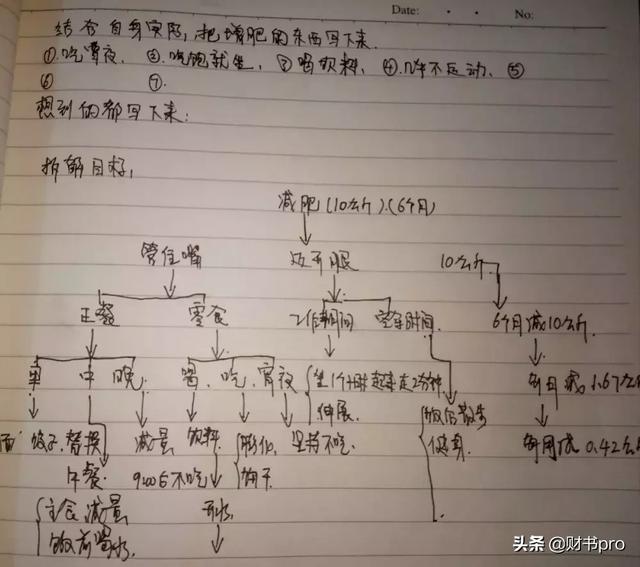 Date: No:
结合自身实际,把增肥的东西写下来
①.吃宵夜, ②.吃饱就坐, ③喝饮料, ④.从不运动, ⑤
⑥ ⑦.
想到的都写下来:
拆解目标,
减肥(10公斤).(6个月)
管住嘴 迈开腿 10公斤
正餐 零食 工作期间 空余时间 6个月减10公斤.
早 中 晚. 喝、吃、宵夜 坐1个小时起来走2分钟 每月减1.67公
伸展. 饭后散步
饺子.替换 减量 饮料 坚持不吃. 健身. 每周减0.42公
午餐. 不吃
主食减量 开水
饭前喝水.
头条 @财书pro